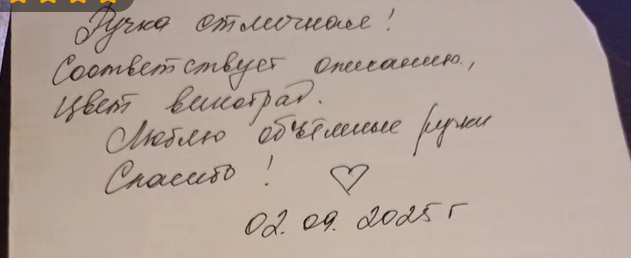 Ручка отличная!
Соответствует описанию,
цвет виноград.
Люблю объёмные ручки
Спасибо! ♡
02.09.2025 г